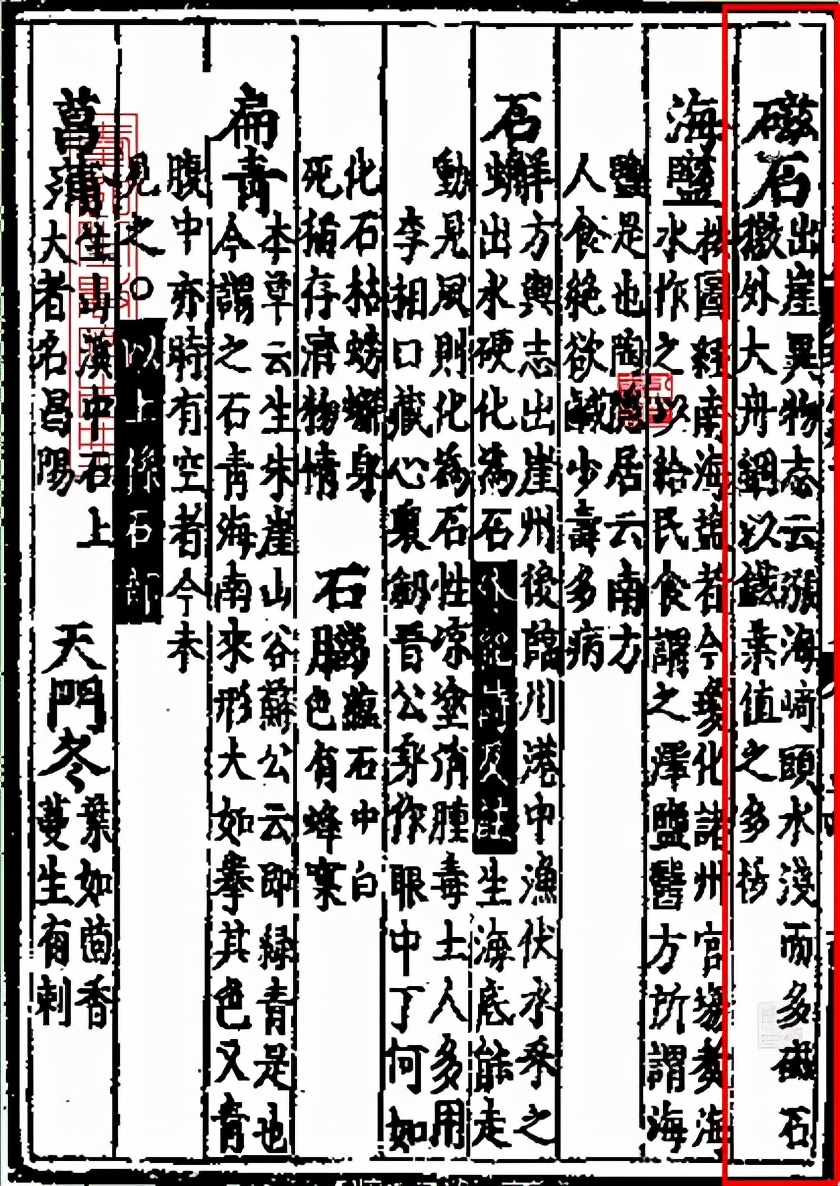 磁石
出崖異物志云漲海崎頭水淺而多磁石
徼外大舟錮以鐵葉值之多拔
海鹽
按圖經南海鹽者今瓊化諸州官場煑海
水作之以給民食謂之澤鹽醫方所謂海
鹽是也陶隱居云南方
人食絕欲鹹少壽多病
石蟹
方輿志出崖州後臨川港中漁伏水采之
出水硬化為石 生海底能走
動見風則化為石性凉塗消腫毒土人多用
李相口藏心裏劔晉公身作眼中丁何如
化石枯螃蠏身
死猶存濟物情
石腦
蘊石中白
色有蜂窠
扁青
本草云生朱崖山谷蘇公云即綠青是也
今謂之石青海南來形大如拳其色又青
腹中亦時有空者今未
見之○以上係石部
菖蒲
生山溪中石上
大者名昌陽
天門冬
葉如茴香
蔓生有刺